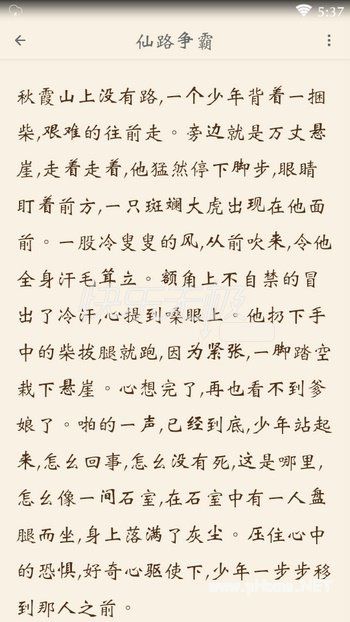 5:37
仙路争霸
秋霞山上没有路,一个少年背着一捆
柴,艰难的往前走。旁边就是万丈悬
崖,走着走着,他猛然停下脚步,眼睛
盯着前方,一只斑斓大虎出现在他面
前。一股冷叟叟的风,从前吹来,令他
全身汗毛耸立。额角上不自禁的冒
出了冷汗,心提到嗓眼上。他扔下手
中的柴拔腿就跑,因为紧张,一脚踏空
栽下悬崖。心想完了,再也看不到爹
娘了。啪的一声,已经到底,少年站起
来,怎幺回事,怎幺没有死,这是哪里,
怎幺像一间石室,在石室中有一人盘
腿而坐,身上落满了灰尘。压住心中
的恐惧,好奇心驱使下,少年一步步移
到那人之前。